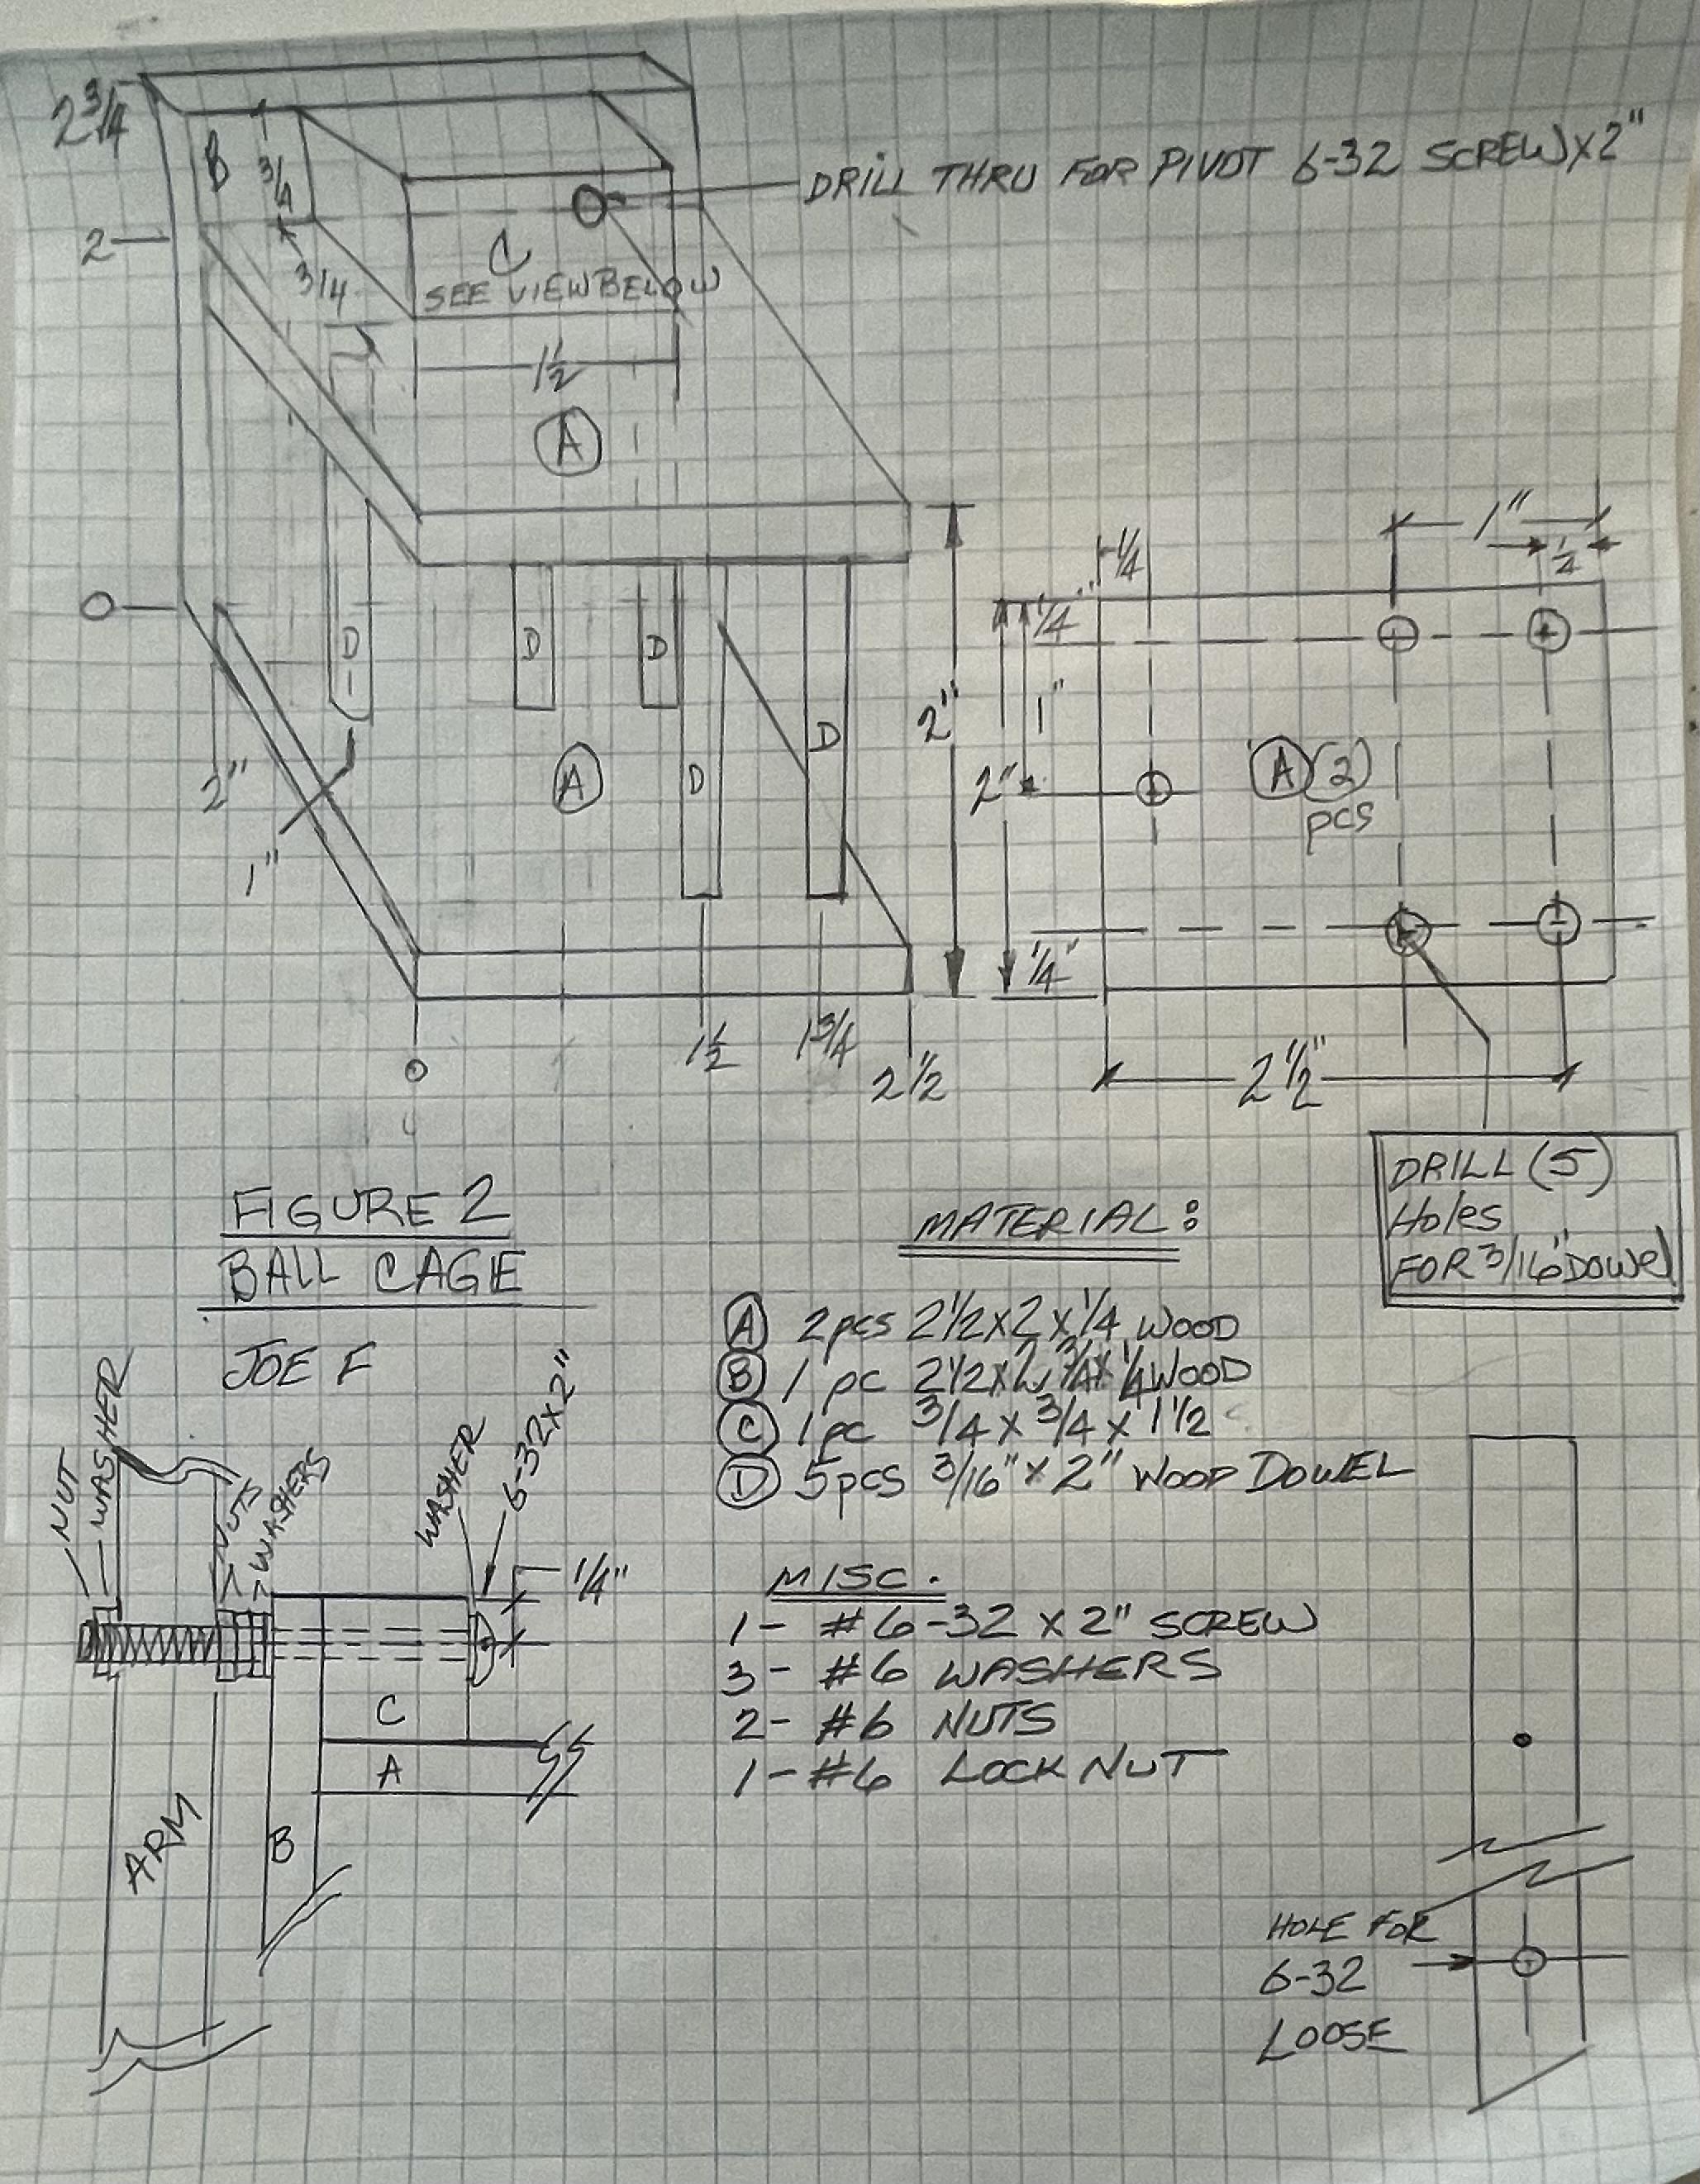 2 3/4
B
3/4
DRILL THRU FOR PIVOT 6-32 SCREW X 2"
2
C
3/4
SEE VIEW BELOW
1 1/2
A
1"
1/4
1/4
1/4"
O
D
D
D
D
D
2"
1"
2"
A (2)
pcs
2"
A
1"
1/4"
1 1/2
1 3/4
2 1/2
O
2 1/2"
DRILL (5)
Holes
FOR 3/16" DOWEL
FIGURE 2
BALL CAGE
JOE F
MATERIAL:
A 2pcs 2 1/2 X 2 X 1/4 WOOD
B 1 pc 2 1/2 X 2 3/4 X 1/4 WOOD
C 1pc 3/4 X 3/4 X 1 1/2
D 5pcs 3/16" X 2" WOOD DOWEL
MISC.
1 - #6-32 X 2" SCREW
3 - #6 WASHERS
2 - #6 NUTS
1 - #6 LOCK NUT
NUT
WASHER
NUTS
WASHERS
WASHER
6-32X2"
1/4"
C
A
B
ARM
HOLE FOR
6-32
LOOSE